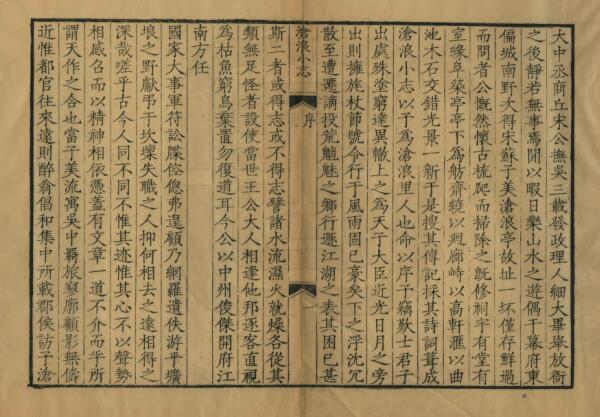 大中丞商丘宋公撫吳三載發政理人細大畢舉放衙
之後靜若無事焉閒以暇日樂山水之遊偶于幕府東
偏城南野次得宋蘇子美滄浪亭故址一坏僅存鮮過
而問者公慨然懷古梳爬而掃除之旣修祠宇有堂有
室緣阜築亭亭下為舫齋繞以迴廊峙以高軒滙以曲
池木石交錯光景一新于是搜其傳記採其詩詞葺成
滄浪小志以予為滄浪里人也命以序予竊歎士君子
出處殊塗窮達異轍上之為天子大臣近光日月之旁
出則擁旄杖節號令行于風雨固已豪矣下之浮沈冗
散至遭遷謫投荒魑魅之鄉行遯江湖之表其困已甚
滄浪小志
序
一
斯二者或得志或不得志譬諸水流濕火就燥各從其
類無足怪者設使當世王公大人相逢他邦逐客直視
為枯魚窮鳥棄置勿復道耳今公以中州俊傑開府江
南方任
國家大事軍符訟牒倥傯弗遑顧乃網羅遺佚游乎壙
埌之野獻弔于坎壈失職之人抑何相去之遠相得之
深哉嗟乎古今人同不同不惟其迹惟其心不以聲勢
相感召而以精神相依憑蓋有文章一道不介而孚所
謂天作之合也當子美流寓吳中羇旅寥廓顧影無儔
近惟都官往來遠則醉翁倡和集中所載郡侯訪予滄